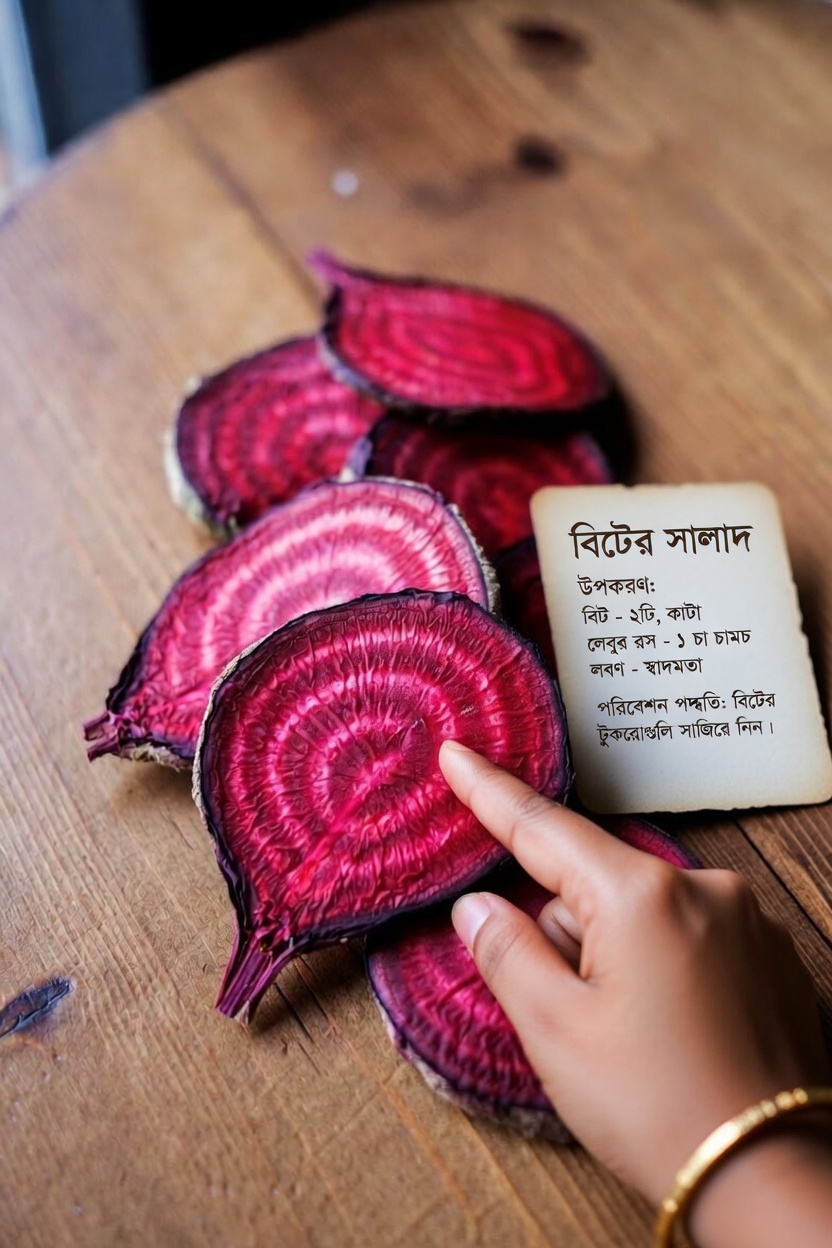 বিটের সালাদ
উপকরণ:
বিট - ২টি, কাটা
লেবুর রস - ১ চা চামচ
লবণ - স্বাদমতা
পরিবেশন পদ্ধতি: বিটের
টুকরোগুলি সাজিরে নিন।